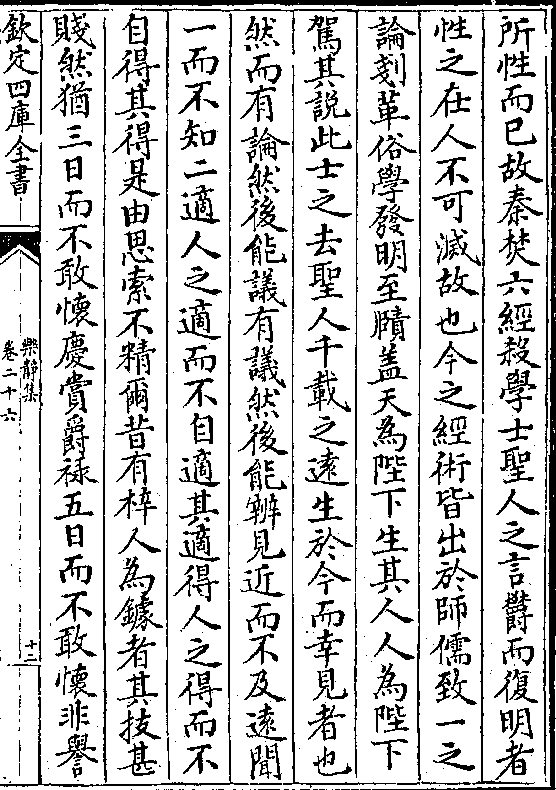 所性而已故秦焚六經殺學士聖人之言欝而復明者
性之在人不可滅故也今之經術皆出於師儒致一之
論刻革俗學發明至賾盖天為陛下生其人人為陛下
駕其說此士之去聖人千載之遠生於今而幸見者也
然而有論然後能議有議然後能辨見近而不及遠聞
一而不知二適人之適而不自適其適得人之得而不
自得其得是由思索不精爾昔有梓人為鐻者其技甚
賤然猶三日而不敢懷慶賞爵禄五日而不敢懷非譽
欽定四庫全書
樂静集
卷二十六
十二